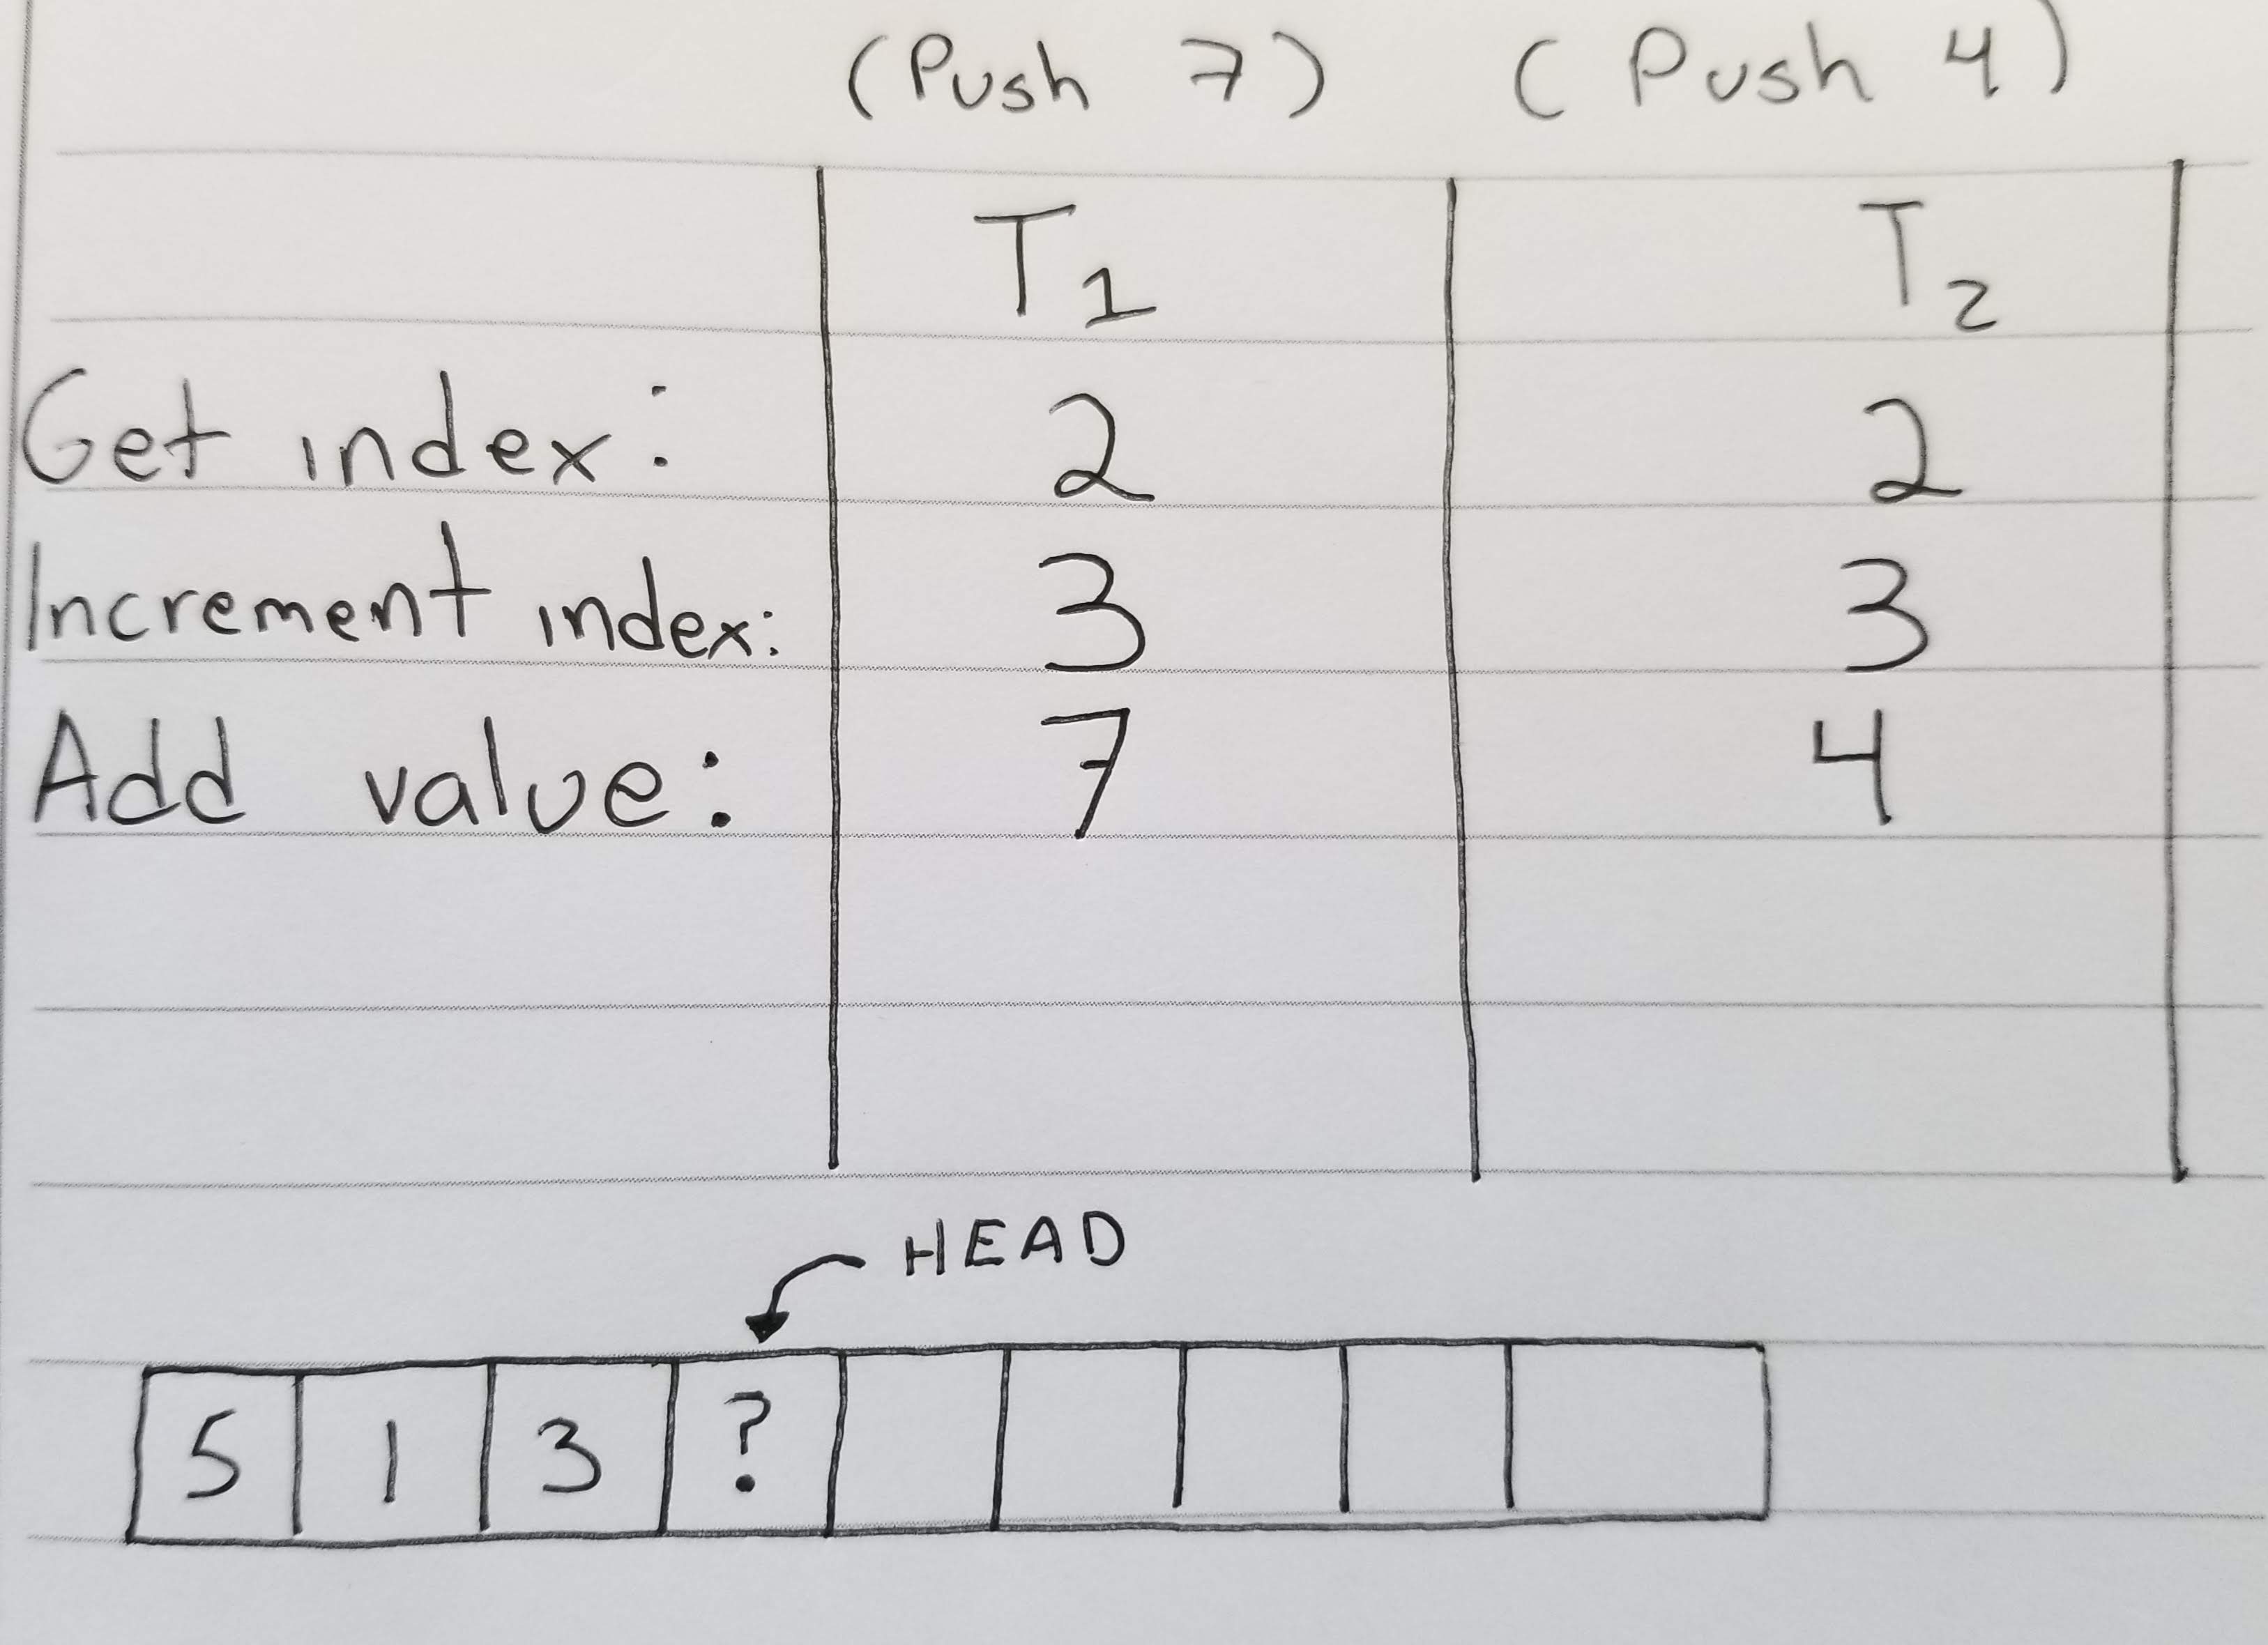 (Push 7) (Push 4)
T1 T2
Get index: 2 2
Increment index: 3 3
Add value: 7 4
HEAD
5 1 3 ?